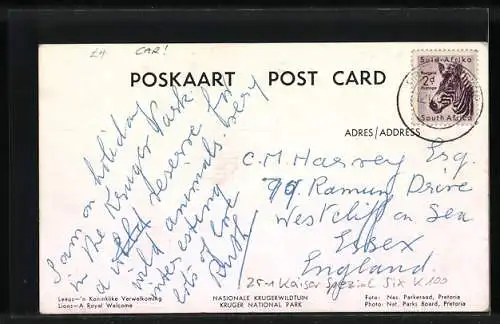 £4 CAR!
POSKAART POST CARD
Suid-Afrika
2d
South Africa
ADRES/ADDRESS
I am on holiday
in the Kruger Park
a reserve for
wild animals very
interesting
lots of love
Ruth
C.M. Harvey Esq.
79. Ramun Drive
Westcliff on Sea
Essex
England.
25M Kaiser Spezial Six K100
Leeus—'n Koninklike Verwelkoming
Lions—A Royal Welcome
NASIONALE KRUGERWILDTUIN
KRUGER NATIONAL PARK
Foto: Nas. Parkeraad, Pretoria
Photo: Nat. Parks Board, Pretoria